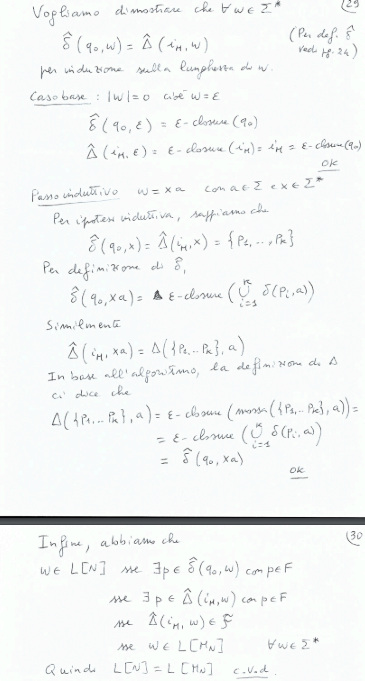 29
Vogliamo dimostrare che ∀w∈Σ*
δ̂(q₀,w) = Δ̂(i_M,w) (Per def. δ̂ vedi pg. 24)
per induzione sulla lunghezza di w.
Caso base : |w|=0 cioè w=ε
δ̂(q₀,ε) = ε-closure(q₀)
Δ̂(i_M,ε) = ε-closure(i_M) = i_M = ε-closure(q₀)
OK
Passo induttivo w=xa con a∈Σ e x∈Σ*
Per ipotesi induttiva, sappiamo che
δ̂(q₀,x) = Δ̂(i_M,x) = {P₁,...,P_K}
Per definizione di δ̂,
δ̂(q₀,xa) = ε-closure(⋃_{i=1}^{K} δ(P_i,a))
Similmente
Δ̂(i_M,xa) = Δ({P₁...P_K},a)
In base all'algoritmo, la definizione di Δ
ci dice che
Δ({P₁...P_K},a) = ε-closure(mossa({P₁...P_K},a)) =
= ε-closure(⋃_{i=1}^{K} δ(P_i,a))
= δ̂(q₀,xa)
OK
30
Infine, abbiamo che
w∈L[N] sse ∃p∈δ̂(q₀,w) con p∈F
sse ∃p∈Δ̂(i_M,w) con p∈F
sse Δ̂(i_M,w)∈ℱ
sse w∈L[M_N] ∀w∈Σ*
Quindi L[N]=L[M_N] c.v.d.